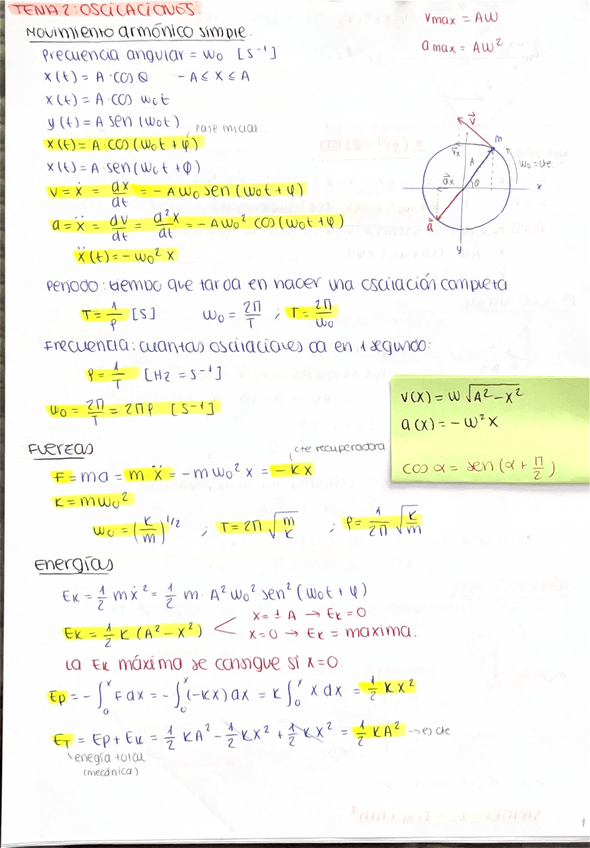 TEMA 2: OSCILACIONES
vmax = AW
amax = AW²
Movimiento armónico simple.
Frecuencia angular = ω₀ [s⁻¹]
x(t) = A · cos θ -A ≤ X ≤ A
x(t) = A · cos ω₀t
y(t) = A sen(ω₀t)
fase inicial
x(t) = A · cos(ω₀t + φ)
x(t) = A · sen(ω₀t + φ)
v = ẋ = dx/dt = -Aω₀ sen(ω₀t + φ)
a = ẍ = dv/dt = d²x/dt = -Aω₀² cos(ω₀t + φ)
ẍ(t) = -ω₀² x
v⃗
m
v⃗x
A
ω₀ = cte.
a⃗x
φ
x
a⃗
y
Periodo: tiempo que tarda en hacer una oscilación completa
T = 1/f [S] ω₀ = 2π/T ; T = 2π/ω₀
Frecuencia: cuantas oscilaciones da en 1 segundo:
f = 1/T [Hz = s⁻¹]
ω₀ = 2π/T = 2πf [s⁻¹]
v(x) = W √(A² - x²)
a(x) = -W² x
cos α = sen(α + π/2)
Fuerzas
cte recuperadora
F = ma = m ẍ = -mω₀² x = -kx
K = mω₀²
ω₀ = (k/m)^1/2 ; T = 2π √(m/k) ; f = 1/2π √(k/m)
Energías
Ek = 1/2 m ẋ² = 1/2 m · A² ω₀² sen²(ω₀t + φ)
Ek = 1/2 K (A² - X²)
x = ± A → Ek = 0
x = 0 → Ek = maxima.
La Ek máxima se consigue si x = 0.
Ep = -∫₀ˣ F dx = -∫₀ˣ (-kx) dx = k ∫₀ˣ x dx = 1/2 kx²
ET = Ep + Ek = 1/2 KA² - 1/2 KX² + 1/2 KX² = 1/2 KA² → es cte
energía total
(mecánica)
1